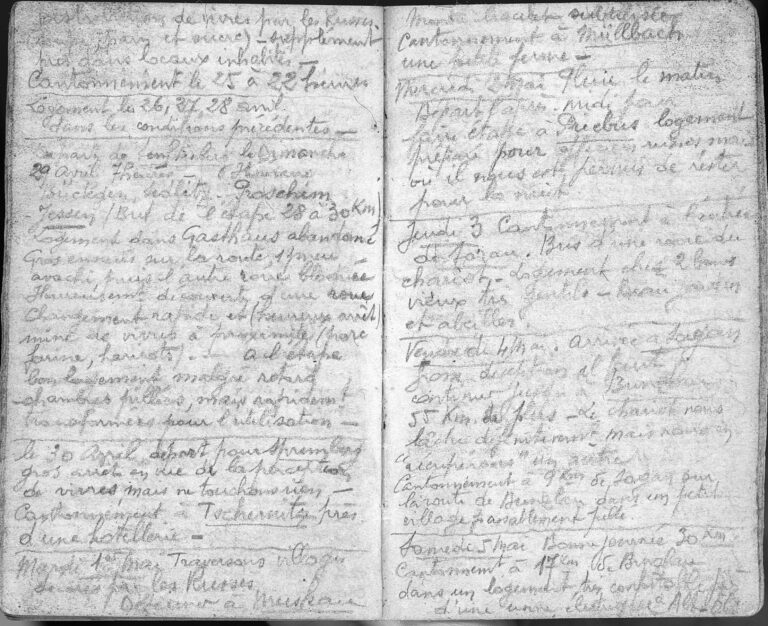 distributions de vivres par les Russes
(soupe, pain et sucre) - supplément
pris dans locaux inhabités -
Cantonnement le 25 à 22 heures
Logement les 26, 27, 28 avril
dans les conditions précédentes -
le Dimanche
29 Avril 7 heures - 8 heures
Proschim
Jessen (But de l'étape 28 à 30 Km)
Logement dans Gasthaus abandonné
Gros ennuis sur la route 1 pneu
avachi, puis l'autre roue bloquée
Heureusemt découverte d'une roue
Changement rapide et (heureux arrêt)
de vivres à proximité (porc
farine, haricots). - a l'étape
bon logement malgré retard
chambres pillées, mais rapidement
transformées pour l'utilisation -
le 30 Avril, départ pour Spremberg
gros arrêt en vue de la perception
de vivres mais ne touchons rien -
Cantonnement à Tschernitz près
d'une hôtellerie -
Mardi 1er Mai Traversons villages
par les Russes
Déjeuner à Muskau
Cantonnement à Müllbach
une petite ferme -
Mercredi 2 Mai Pluie le matin
Départ l'après-midi pour
faire étape à Priebus logement
préparé pour russes mais
où il nous est permis de rester
pour la nuit
Jeudi 3 Cantonnement à l'entrée
de Sorau. Bris d'une roue du
chariot - Logement chez 2 bons
vieux très gentils - beau jardin
et abeilles.
Vendredi 4 Mai. arrivée à Sagan
direction il faut
continuer jusqu'à Bunzlau
55 Km de plus - Le chariot nous
lâche définitivement mais nous en
"récupérons" un autre
Cantonnement à 9 km de Sagan sur
la route de Bunzlau dans un petit
village passablement pillé
Samedi 5 Mai Bonne journée 30 Km
Cantonnement à 17 km de Bunzlau
dans un logement très confortable
d'une usine électrique à Alt-Öls